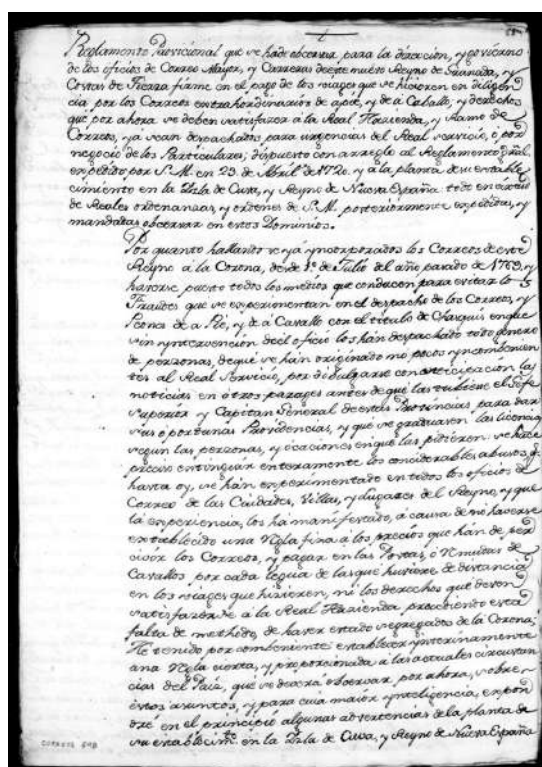 Reglamento Provicional que se ha de observar para la direccion, y govierno
de los oficios de Correo Mayor, y Carreras de este nuevo Reyno de Granada, y
Costas de Tierra firme en el pago de los viages que se hicieren en diligen
cia por los Correos extrahordinarios de apie, y de á Caballo, y derechos
que por ahora se deben satisfazer á la Real Hazienda, y Ramo de
Correos, yá sean despachados para urgencias del Real servicio, ó por
negocio de los Particulares; dispuesto con arreglo al Reglamento Gral.
expedido por S. M. en 23. de Abril de 1720. y á la planta de su estable
cimiento en la Ysla de Cuva, y Reyno de Nueva España: todo en
de Reales ordenanzas, y ordenes de S. M. posteriormente expedidas, y
mandadas observar en estos Dominios.
Por quanto hallandose yá yncorporados los Correos de este
Reyno á la Corona, desde 1º. de Julio del año pasado de 1769, y
haverse puesto todos los medios que conducen para evitar los
Fraudes que se experimentan en el despacho de los Correos, y
Peones de a Pié, y de á Cavallo con el titulo de Chasquis en que
sin yntervencion del oficio los hán despachado todo genero
de personas, de que se hán originado no pocos yncombenien
tes al Real Servicio, por divulgarse con anticipacion las
noticias en otros parages antes de que las tubiese el Gefe
superior y Capitan General de estas Provincias para dar
sus oportunas Providencias, y que se graduasen las licencias
segun las personas, y ocaciones en que las pidieren: se hace
preciso extinguir enteramente los considerables abusos, q.
hasta oy, se hán experimentado en todos los oficios de
Correo de las Ciudades, Villas, y Lugares del Reyno, y que
la experiencia, los há manifestado, á causa de no haverse
establecido una Regla fixa á los precios que hán de per
civir los Correos, y pagar en las Postas, ó Remudas de
Cavallos por cada legua de las que huviere de distancia
en los viages que hizieren, ni los derechos que deven
satisfazerse á la Real Hazienda, procediendo esta
falta de methodo, de haver estado segregados de la Corona;
He tenido por combeniente establecer ynterinamente
una Regla cierta, y proporcionada á las actuales circunstan
cias del Pais, que se deverá observar por ahora, sobre
estos asuntos, y para cuia maior ynteligencia, expon
dré en el principio algunas advertencias de la planta de
su establecimto. en la Ysla de Cuva, y Reyno de Nueva España